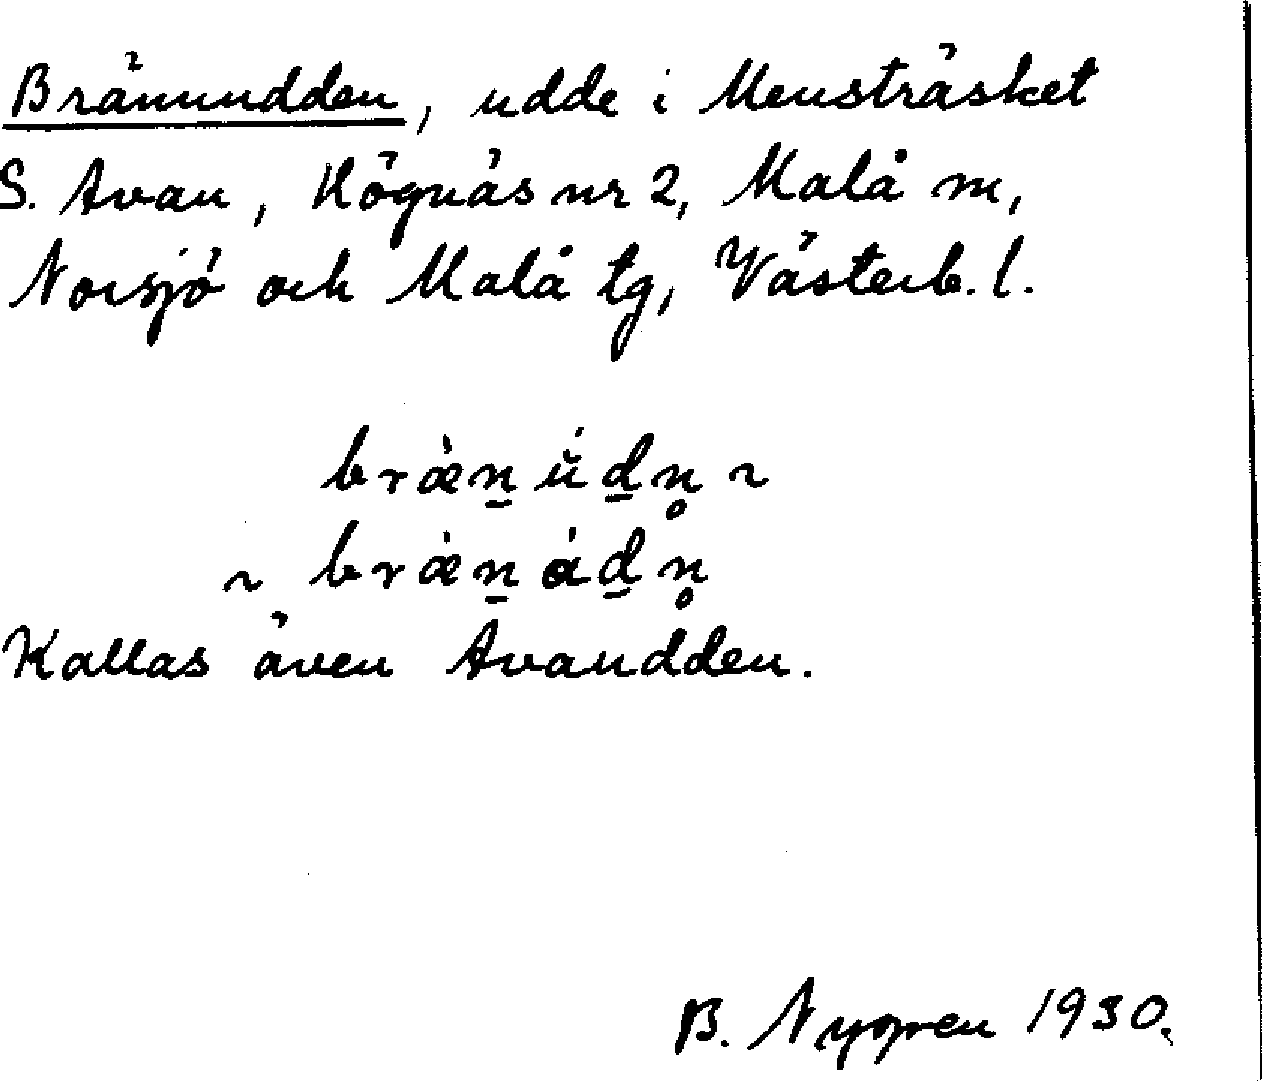 Brännudden, udde i Mensträsket
S. Avan, Högnäs nr 2, Malå sn,
Norsjö och Malå tg, Västerb. l.
bræ̀n̲ ǘd̲n̥ ~
~ bræ̀n̲ád̲n̥
Kallas även Avaudden.
B. Nygren 1930.